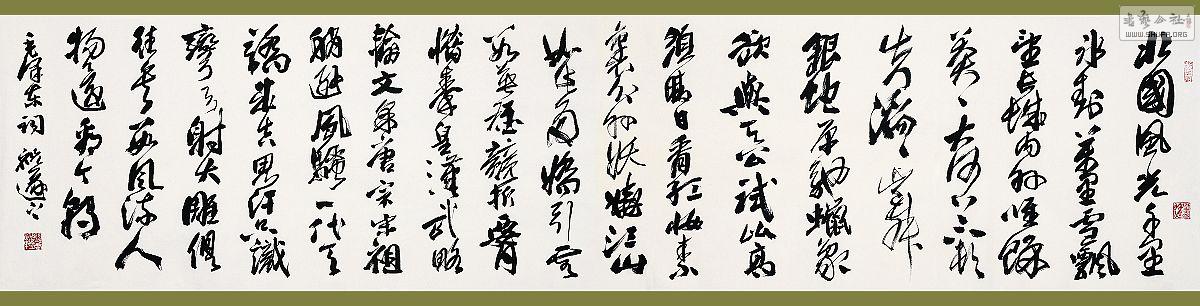 北國風光千里
冰封萬里雪飄
望長城內外惟餘
莽々大河上下頓
失滔々山舞
銀蛇原馳蠟象
欲與天公試比高
須晴日看紅妝素
裹分外妖嬈江山
如此多嬌引無
數英雄競折腰
惜秦皇漢武略
輸文采唐宗宋祖
稍遜風騷一代天
驕成吉思汗只識
彎弓射大雕俱
往矣數風流人
物還看今朝
毛澤東詞
WWW.SHUFA.ORG